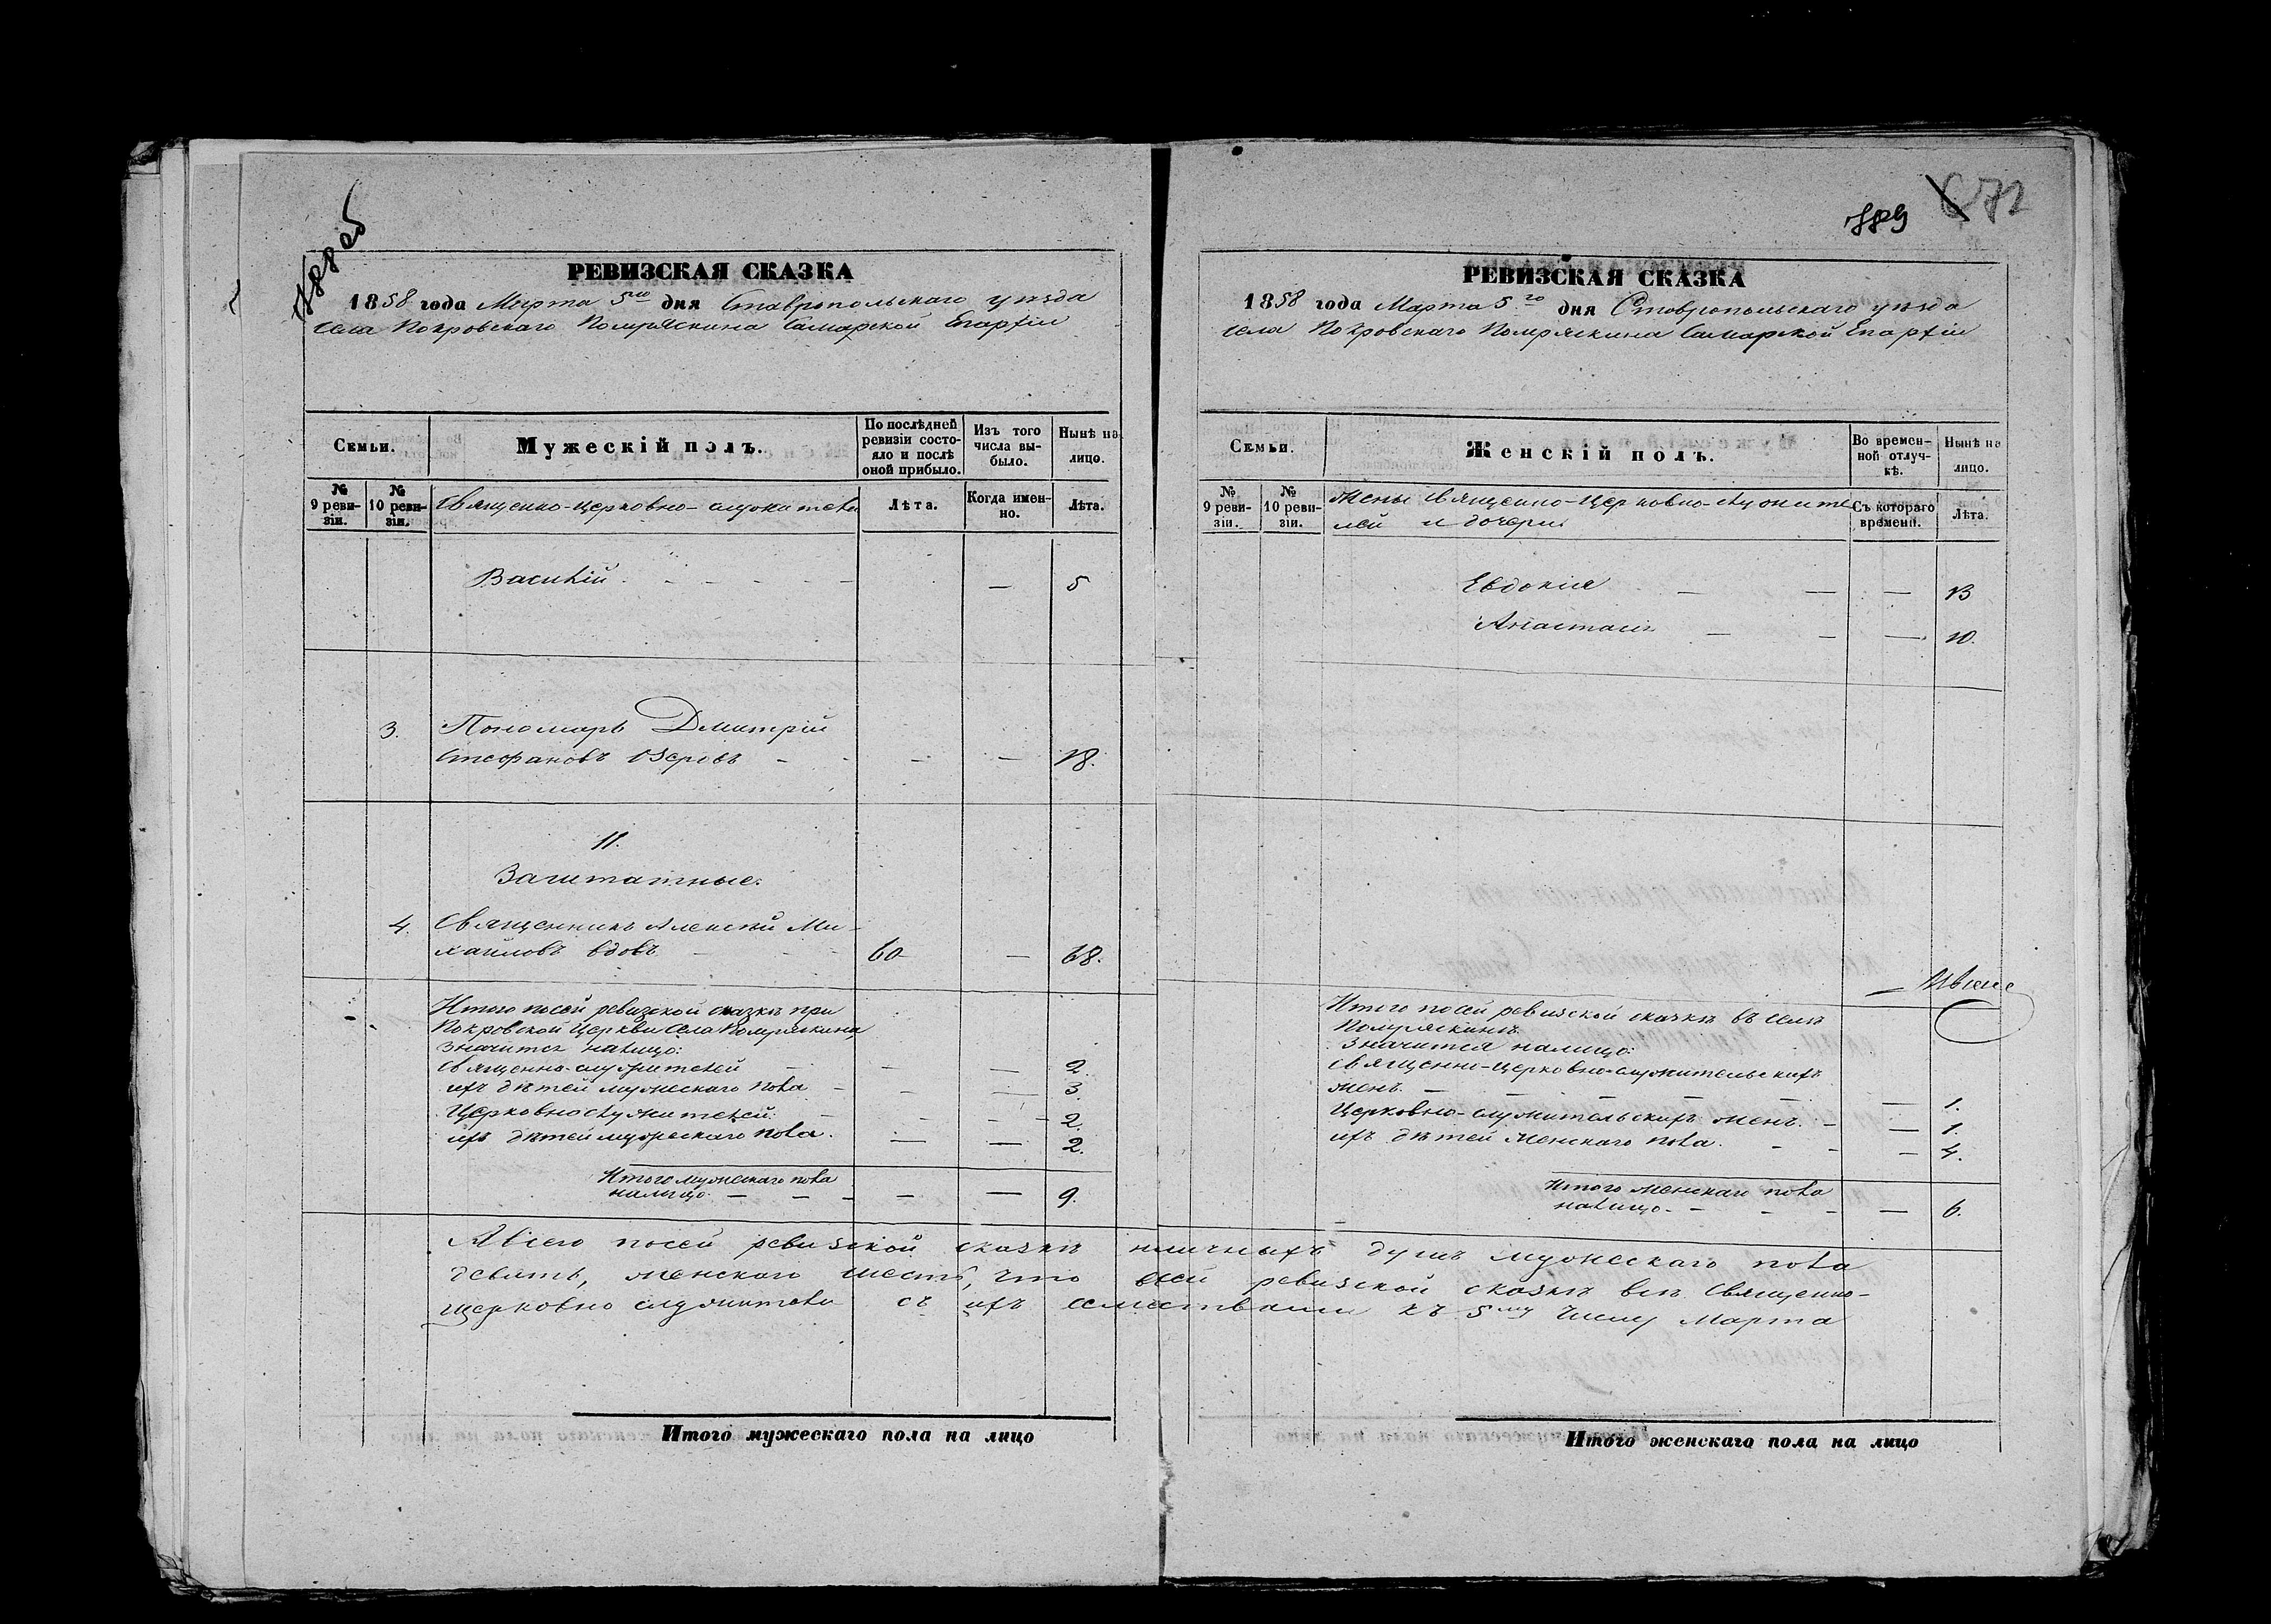 788 об
РЕВИЗСКАЯ СКАЗКА
1858 года Марта 5го дня Ставропольскаго уѣзда
села Покровскаго Помряскина Самарской Епархіи
Семьи.
Мужескій полъ.
По послѣдней ревизіи состояло и послѣ оной прибыло.
Изъ того числа выбыло.
Нынѣ на лицо.
№ 9 ревизіи.
№ 10 ревизіи.
Священно-церковно-служители
Лѣта.
Когда именно.
Лѣта.
Василій - - - - - — 5
3. Пономарь Дмитрій
Стефановъ Озеровъ - - — — 18.
11.
Заштатные.
4. Священникъ Алексѣй Ми-
хайловъ вдовъ - - - 60 — 68.
Итого посей ревизской сказкѣ при
Покровской Церкви села Помряскина,
значится налицо:
Священно-служителей - — — 2.
ихъ дѣтей мужескаго пола - - — 3.
Церковнослужителей. - - - - 2.
ихъ дѣтей мужескаго пола. — — 2.
Итого мужескаго пола
налицо. — — - — — 9.
Итого мужескаго пола на лицо
789
672
РЕВИЗСКАЯ СКАЗКА
1858 года Марта 5го дня Ставропольскаго уѣзда
села Покровскаго Помряскина Самарской Епархіи
Семьи.
Женскій полъ.
Во временной отлучкѣ.
Нынѣ на лицо.
№ 9 ревизіи.
№ 10 ревизіи.
Жены Священно-Церковно-служите
лей и дочери
Съ котораго времени.
Лѣта.
Евдокія — — — 13
Анастасія — - — 10.
Итого посей ревизской сказкѣ въ селѣ
Помряскинѣ
значится налицо:
Священно-церковно-служительскихъ
женъ. — - — — - — 1.
Церковно-служительскихъ женъ. - — 1.
ихъ дѣтей женскаго пола. - - — 4.
Итого женскаго пола
налицо. - - - — 6.
А всего посей ревизской сказкѣ наличныхъ душъ мужескаго пола
девять, женскаго шесть, что всей ревизской сказкѣ всѣ Священно-
церковно служители съ ихъ семействами къ 5му числу Марта
Итого женскаго пола на лицо